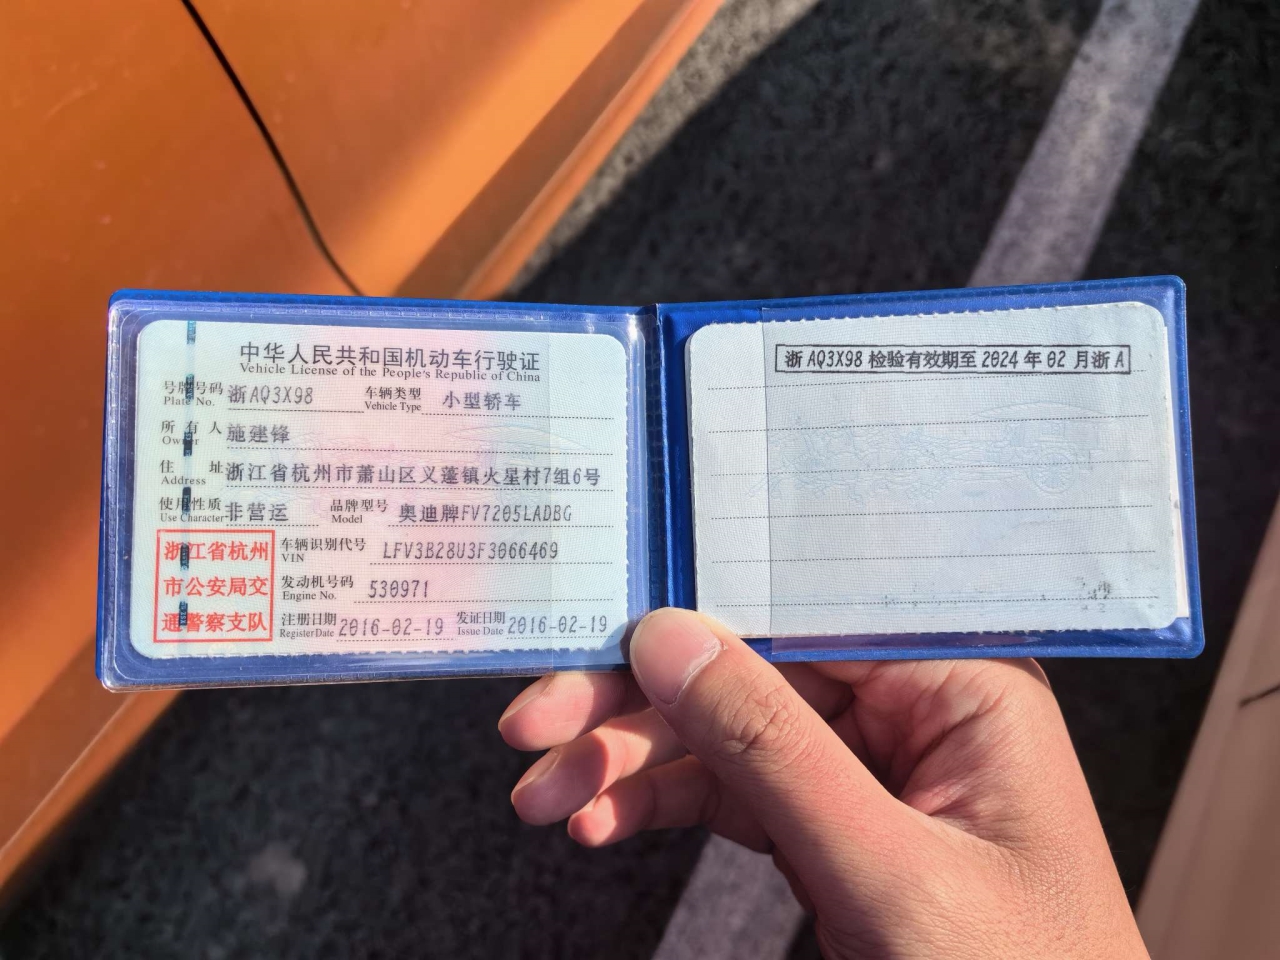 中华人民共和国机动车行驶证
Vehicle License of the People's Republic of China
号牌号码 浙AQ3X98 车辆类型 小型轿车
Plate No. Vehicle Type
所有人 施建锋
Owner
住址 浙江省杭州市萧山区义蓬镇火星村7组6号
Address
使用性质 非营运 品牌型号 奥迪牌FV7205LADBG
Use Character Model
浙江省杭州
市公安局交
通警察支队
车辆识别代号 LFV3B28U3F3066469
VIN
发动机号码 530971
Engine No.
注册日期 2016-02-19 发证日期 2016-02-19
Register Date Issue Date
浙AQ3X98 检验有效期至 2024 年 02 月浙A